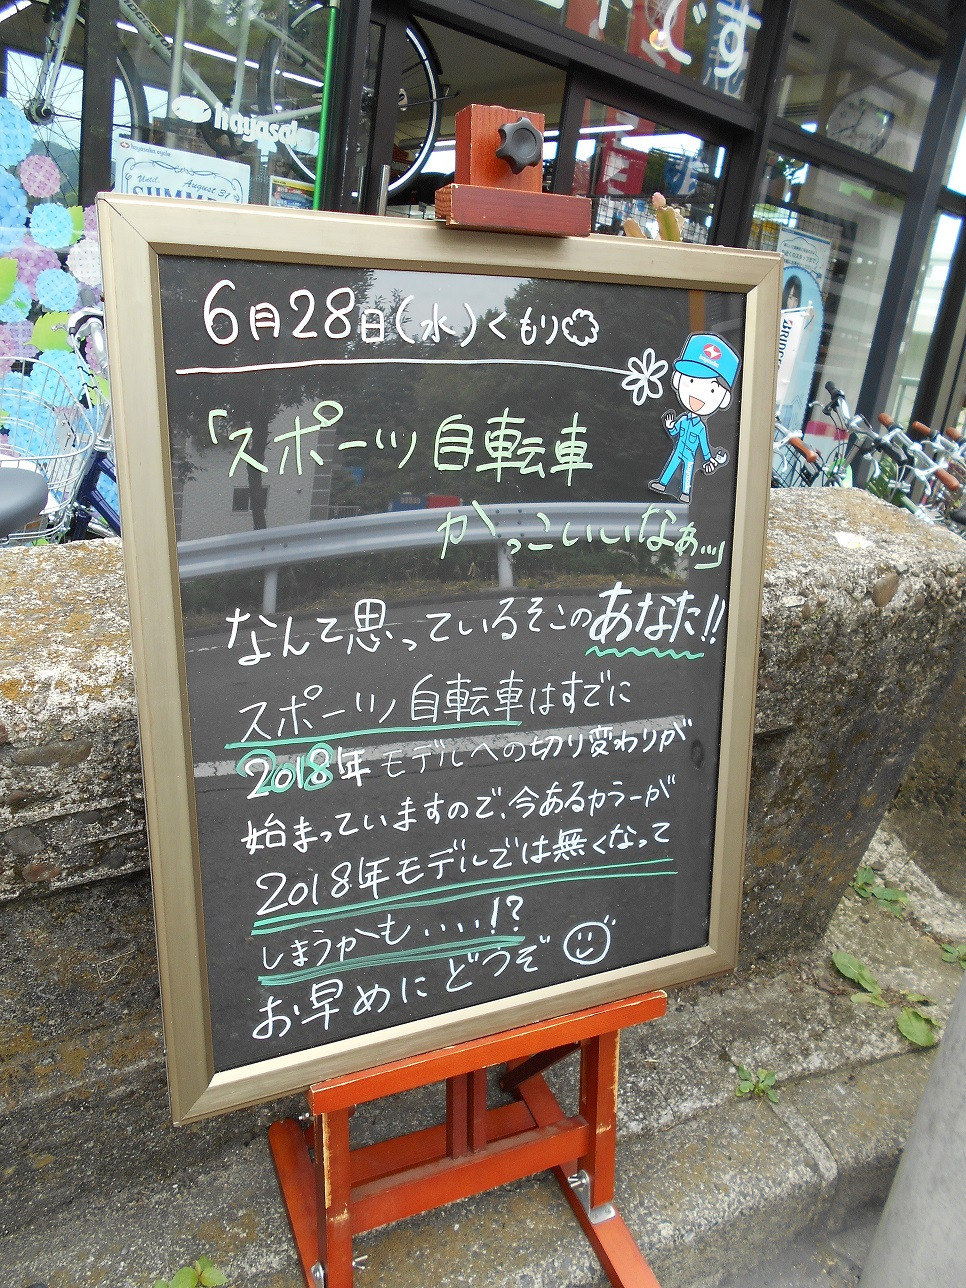 です
hayasaka
hayasaka cycle
Until August 31
SUMM
6月28日(水)くもり
「スポーツ自転車
かっこいいなぁッ」
なんて思っているそこのあなた!!
スポーツ自転車はすでに
2018年モデルへの切り変わりが
始まっていますので、今あるカラーが
2018年モデルでは無くなって
しまうかも...!?
お早めにどうぞ